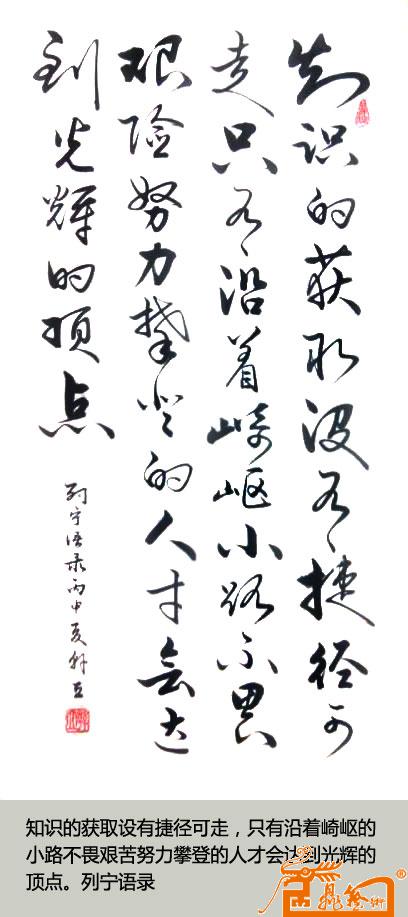 知识的获取没有捷径可
走只有沿着崎岖小路不畏
艰险努力攀登的人才会达
到光辉的顶点
列宁语录丙申夏
知识的获取设有捷径可走，只有沿着崎岖的
小路不畏艰苦努力攀登的人才会达到光辉的
顶点。列宁语录